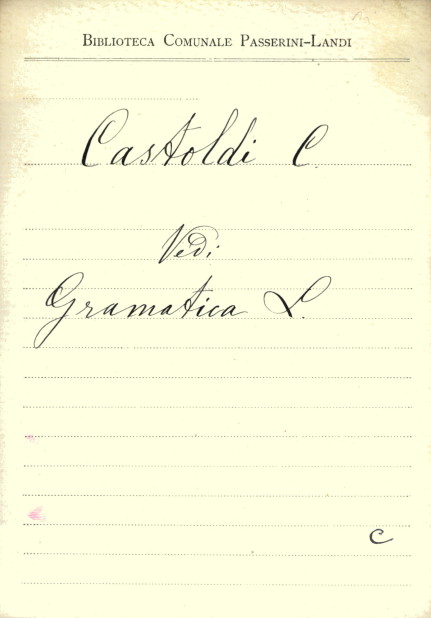 Biblioteca Comunale Passerini-Landi
Castoldi C.
Vedi
Gramatica L.
C